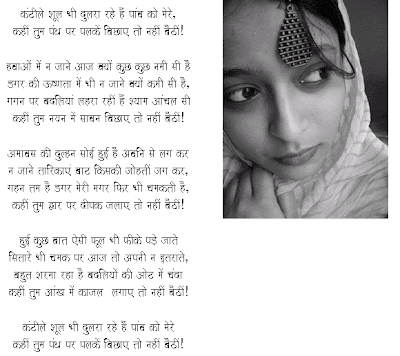 कंटीले शूल भी दुलरा रहे हैं पांव को मेरे,
कहीं तुम पंथ पर पलकें बिछाए तो नहीं बैठीं!
हवाओं में न जाने आज क्यों कुछ कुछ नमी सी है
डगर की उष्णता में भी न जाने क्यों कमी सी है,
गगन पर बदलियां लहरा रहीं हैं श्याम आंचल सी
कहीं तुम नयन में सावन बिछाए तो नहीं बैठीं!
अमावस की दुल्हन सोई हुई है अवनि से लग कर
न जाने तारिकाएं बाट किसकी जोहतीं जग कर,
गहन तम है डगर मेरी मगर फिर भी चमकती है,
कहीं तुम द्वार पर दीपक जलाए तो नहीं बैठीं!
हुई कुछ बात ऐसी फूल भी फीके पड़े जाते
सितारे भी चमक पर आज तो अपनी न इतराते,
बहुत शरमा रहा है बदलियों की ओट में चंदा
कहीं तुम आंख में काजल लगाए तो नहीं बैठीं!
कंटीले शूल भी दुलरा रहे हैं पांव को मेरे
कहीं तुम पंथ पर पलकें बिछाए तो नहीं बैठीं!